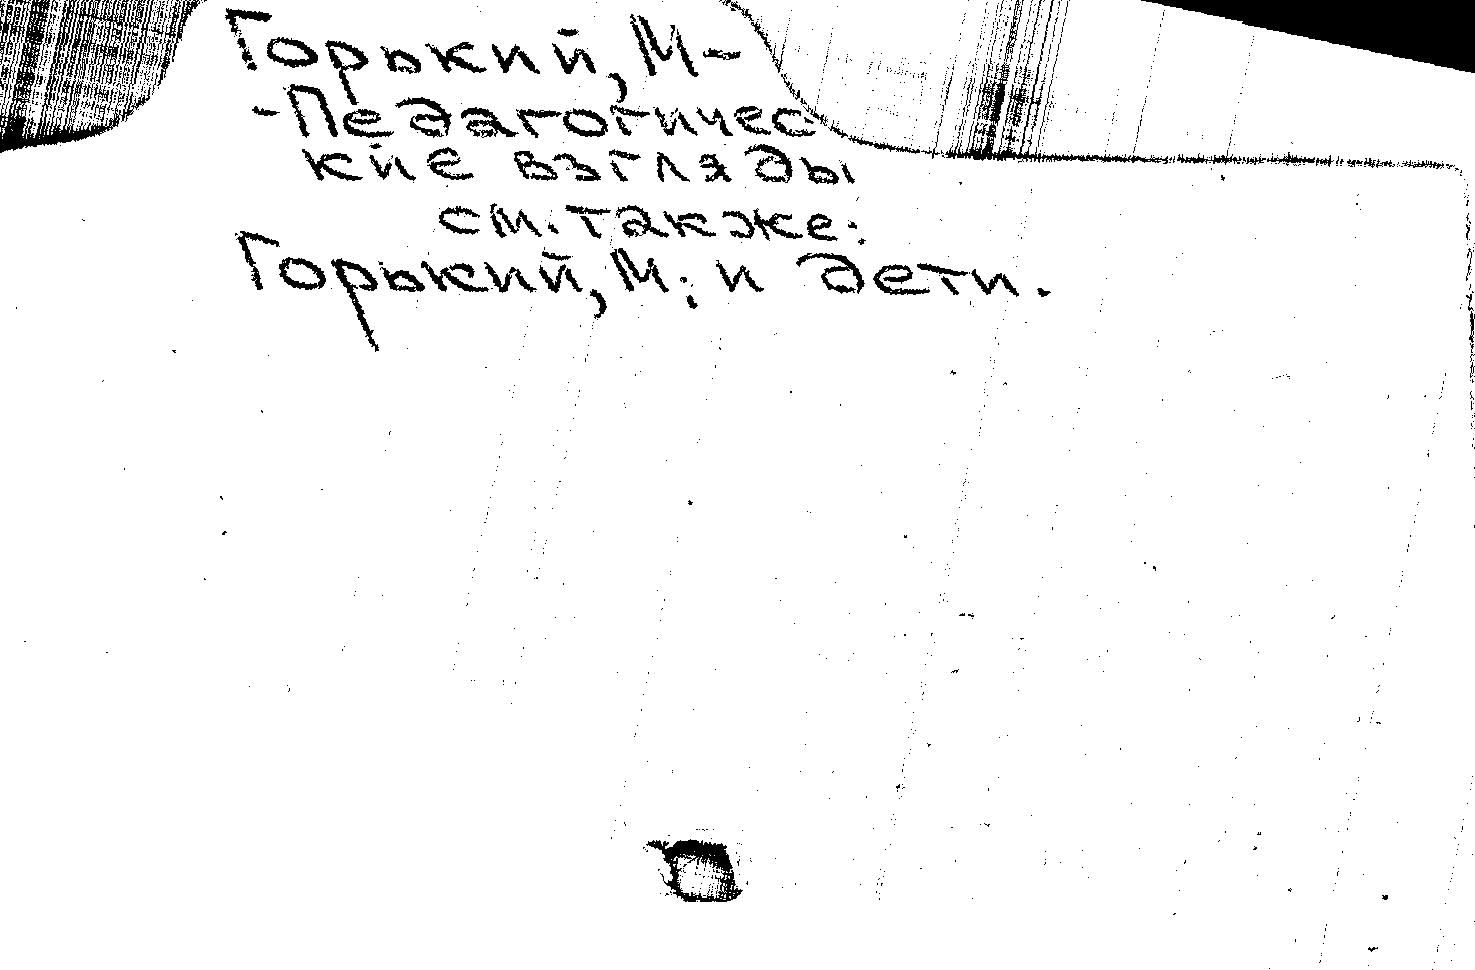 Горький, М-
-Педагогичес
кие взгляды
см. также:
Горький, М. и дети.